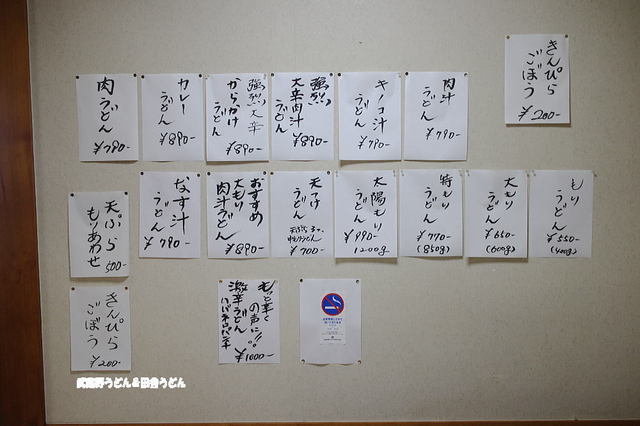 きんぴら
ごぼう
¥200-
肉汁
うどん
¥790-
キノコ汁
うどん
¥790-
強烈!!
大辛肉汁
うどん
¥890-
強烈大辛
からかけ
うどん
¥890-
カレー
うどん
¥890-
肉
うどん
¥790-
もり
うどん
¥550-
(400g)
大もり
うどん
¥650-
(600g)
特もり
うどん
¥770-
(850g)
太陽もり
うどん
¥990-
1200g
天つけ
うどん
¥700-
おすすめ
大もり
肉汁うどん
¥890-
なす汁
うどん
¥790-
天ぷら
もりあわせ
500-
もっと辛く
の声に!!
激辛うどん
¥1000-
きんぴら
ごぼう
¥200-
武蔵野うどん&田舎うどん